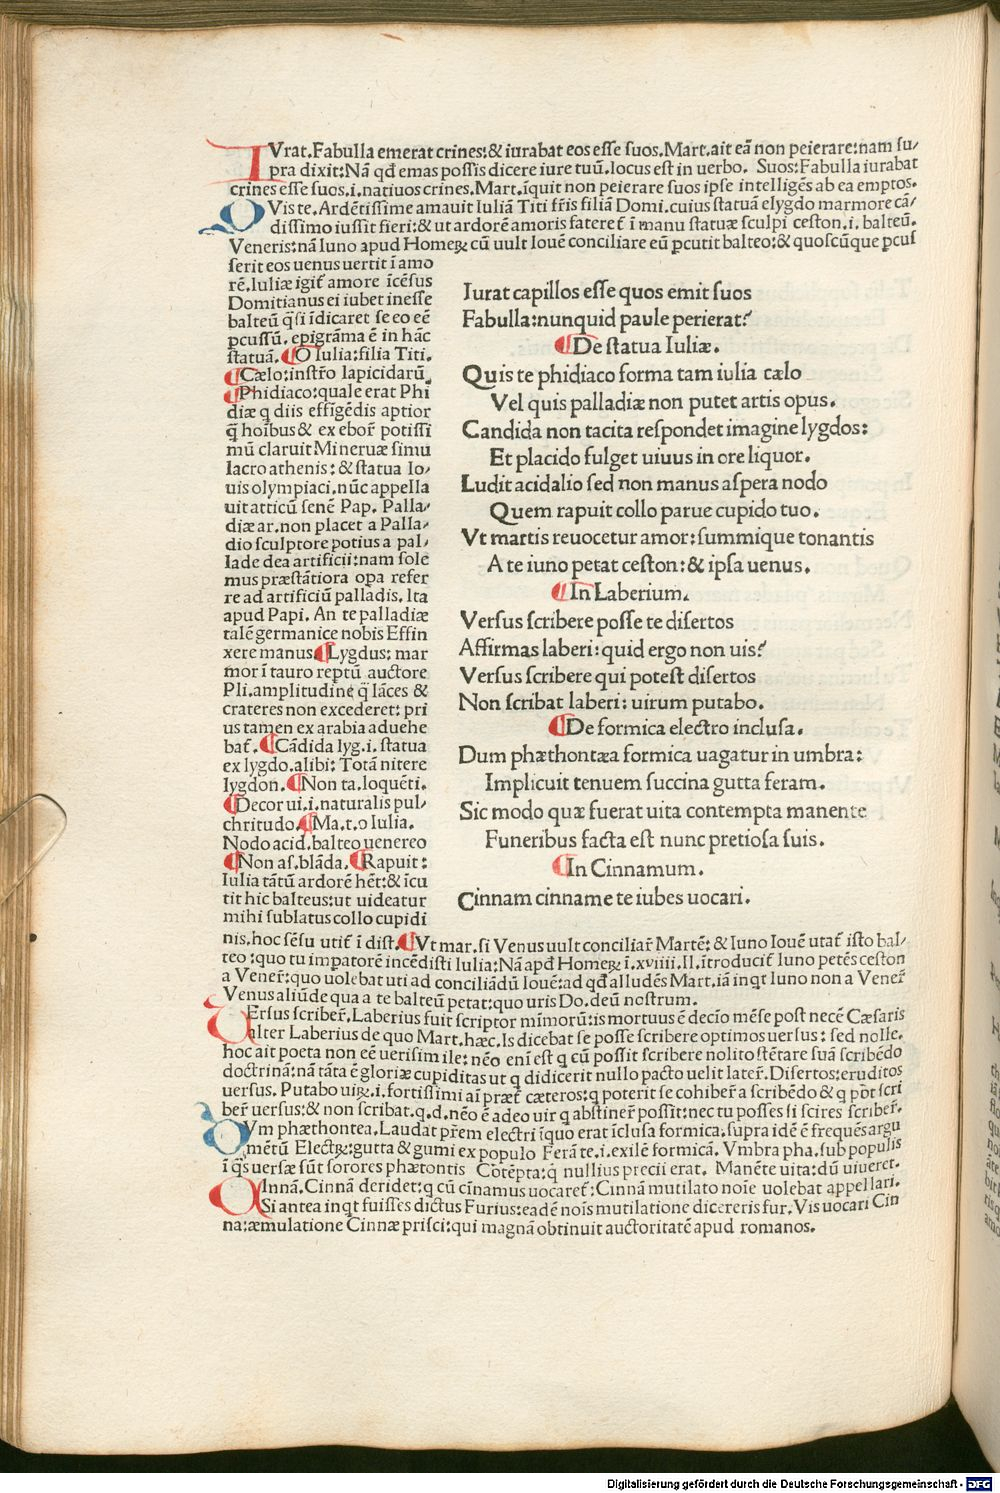 IVrat. Fabulla emerat crines: & iurabat eos esse suos. Mart. ait eã non peierare: nam su/
pra dixit: Nã qd emas possis dicere iure tuũ. locus est in uerbo. Suos: Fabulla iurabat
crines esse suos. i. natiuos crines. Mart. iquit non peierare suos ipse intelligẽs ab ea emptos.
QVis te. Ardẽtissime amauit Iuliã Titi fr̃is filiã Domi. cuius statuã elygdo marmore cã/
dissimo iussit fieri: & ut ardorẽ amoris fateret̃ ĩ manu statuæ sculpi ceston. i. balteũ.
Veneris: nã Iuno apud Homeꝝ cũ uult Iouẽ conciliare eũ pcutit balteo: & quoscũque pcus
serit eos uenus uertit ĩ amo
rẽ. Iuliæ igit̃ amore ĩcẽsus
Domitianus ei iubet inesse
balteũ q̃si ĩdicaret se eo eẽ
pcussũ. epigrãma ẽ in hãc
statuã. ¶O Iulia: filia Titi.
¶Cælo: instr̃o lapicidarũ.
¶Phidiaco: quale erat Phi
diæ q diis effigẽdis aptior
q̃ hoĩbus & ex ebor̃ potissi
mũ claruit Mineruæ simu
lacro athenis: & statua Io/
uis olympiaci. nũc appella
uit atticũ senẽ Pap. Palla/
diæ ar. non placet a Palla/
dio sculptore potius a pal/
lade dea artificii: nam sole
mus præstãtiora opa refer
re ad artificiũ palladis. Ita
apud Papi. An te palladiæ
talẽ germanice nobis Effin
xere manus. ¶Lygdus: mar
mor ĩ tauro reptũ auctore
Pli. amplitudinẽ q̃ lãces &
crateres non excederet: pri
us tamen ex arabia aduehe
bat̃. ¶Cãdida lyg. i. statua
ex lygdo. alibi: Totã nitere
lygdon. ¶Non ta. loquẽti.
¶Decor ui. i. naturalis pul/
chritudo. ¶Ma. t. o Iulia.
Nodo acid. balteo uenereo
¶Non as. blãda. ¶Rapuit:
Iulia tãtũ ardorẽ hẽt: & ĩcu
tit hic balteus: ut uideatur
mihi sublatus collo cupidi
Iurat capillos esse quos emit suos
Fabulla: nunquid paule perierat?
¶De statua Iuliæ.
Quis te phidiaco forma tam iulia cælo
Vel quis palladiæ non putet artis opus.
Candida non tacita respondet imagine lygdos:
Et placido fulget uiuus in ore liquor.
Ludit acidalio sed non manus aspera nodo
Quem rapuit collo parue cupido tuo.
Vt martis reuocetur amor: summique tonantis
A te iuno petat ceston: & ipsa uenus.
¶In Laberium.
Versus scribere posse te disertos
Affirmas laberi: quid ergo non uis?
Versus scribere qui potest disertos
Non scribat laberi: uirum putabo.
¶De formica electro inclusa.
Dum phæthontæa formica uagatur in umbra:
Implicuit tenuem succina gutta feram.
Sic modo quæ fuerat uita contempta manente
Funeribus facta est nunc pretiosa suis.
¶In Cinnamum.
Cinnam cinname te iubes uocari.
nis. hoc sẽsu utit̃ ĩ dist. ¶Vt mar. si Venus uult conciliar̃ Martẽ: & Iuno Iouẽ utat̃ isto bal/
teo: quo tu impatorẽ incẽdisti Iulia: Nã apd Homeꝝ ĩ. xviiii. Il. ĩtroducit̃ Iuno petẽs ceston
a Vener̃: quo uolebat uti ad conciliãdũ Iouẽ: ad qd alludẽs Mart. iã inqt Iuno non a Vener̃
Venus aliũde qua a te balteũ petat: quo uris Do. deũ nostrum.
VErsus scriber̃. Laberius fuit scriptor mĩmorũ: is mortuus ẽ decĩo mẽse post necẽ Cæsaris
alter Laberius de quo Mart. hæc. Is dicebat se posse scribere optimos uersus: sed nolle.
hoc ait poeta non eẽ uerisimile: nẽo enĩ est q cũ possit scribere nolit ostẽtare suã scribẽdo
doctrinã: nã tãta ẽ gloriæ cupiditas ut q didicerit nullo pacto uelit later̃. Disertos: eruditos
uersus. Putabo uiꝝ. i. fortissimi aĩ præt̃ cæteros: q poterit se cohiber̃ a scribẽdo & q põt scri
ber̃ uersus: & non scribat. q. d. nẽo ẽ adeo uir q abstiner̃ possit: nec tu posses si scires scriber̃.
DVm phæthontea. Laudat pr̃em electri ĩquo erat ĩclusa formica. supra idẽ ẽ frequẽs argu
mẽtũ Electꝝ: gutta & gumi ex populo Ferã te. i. exilẽ formicã. Vmbra pha. sub populis
ĩ q̃s uersæ sũt sorores phætontis Cõtẽpta: q̃ nullius precii erat. Manẽte uita: dũ uiueret.
CInnã. Cinnã deridet: q cũ cĩnamus uocaret̃: Cinnã mutilato noĩe uolebat appellari.
Si antea inqt fuisses dictus Furius: eadẽ noĩs mutilatione dicereris fur. Vis uocari Cin
na: æmulatione Cinnæ prisci: qui magnã obtinuit auctoritatẽ apud romanos.
Digitalisierung gefördert durch die Deutsche Forschungsgemeinschaft - DFG